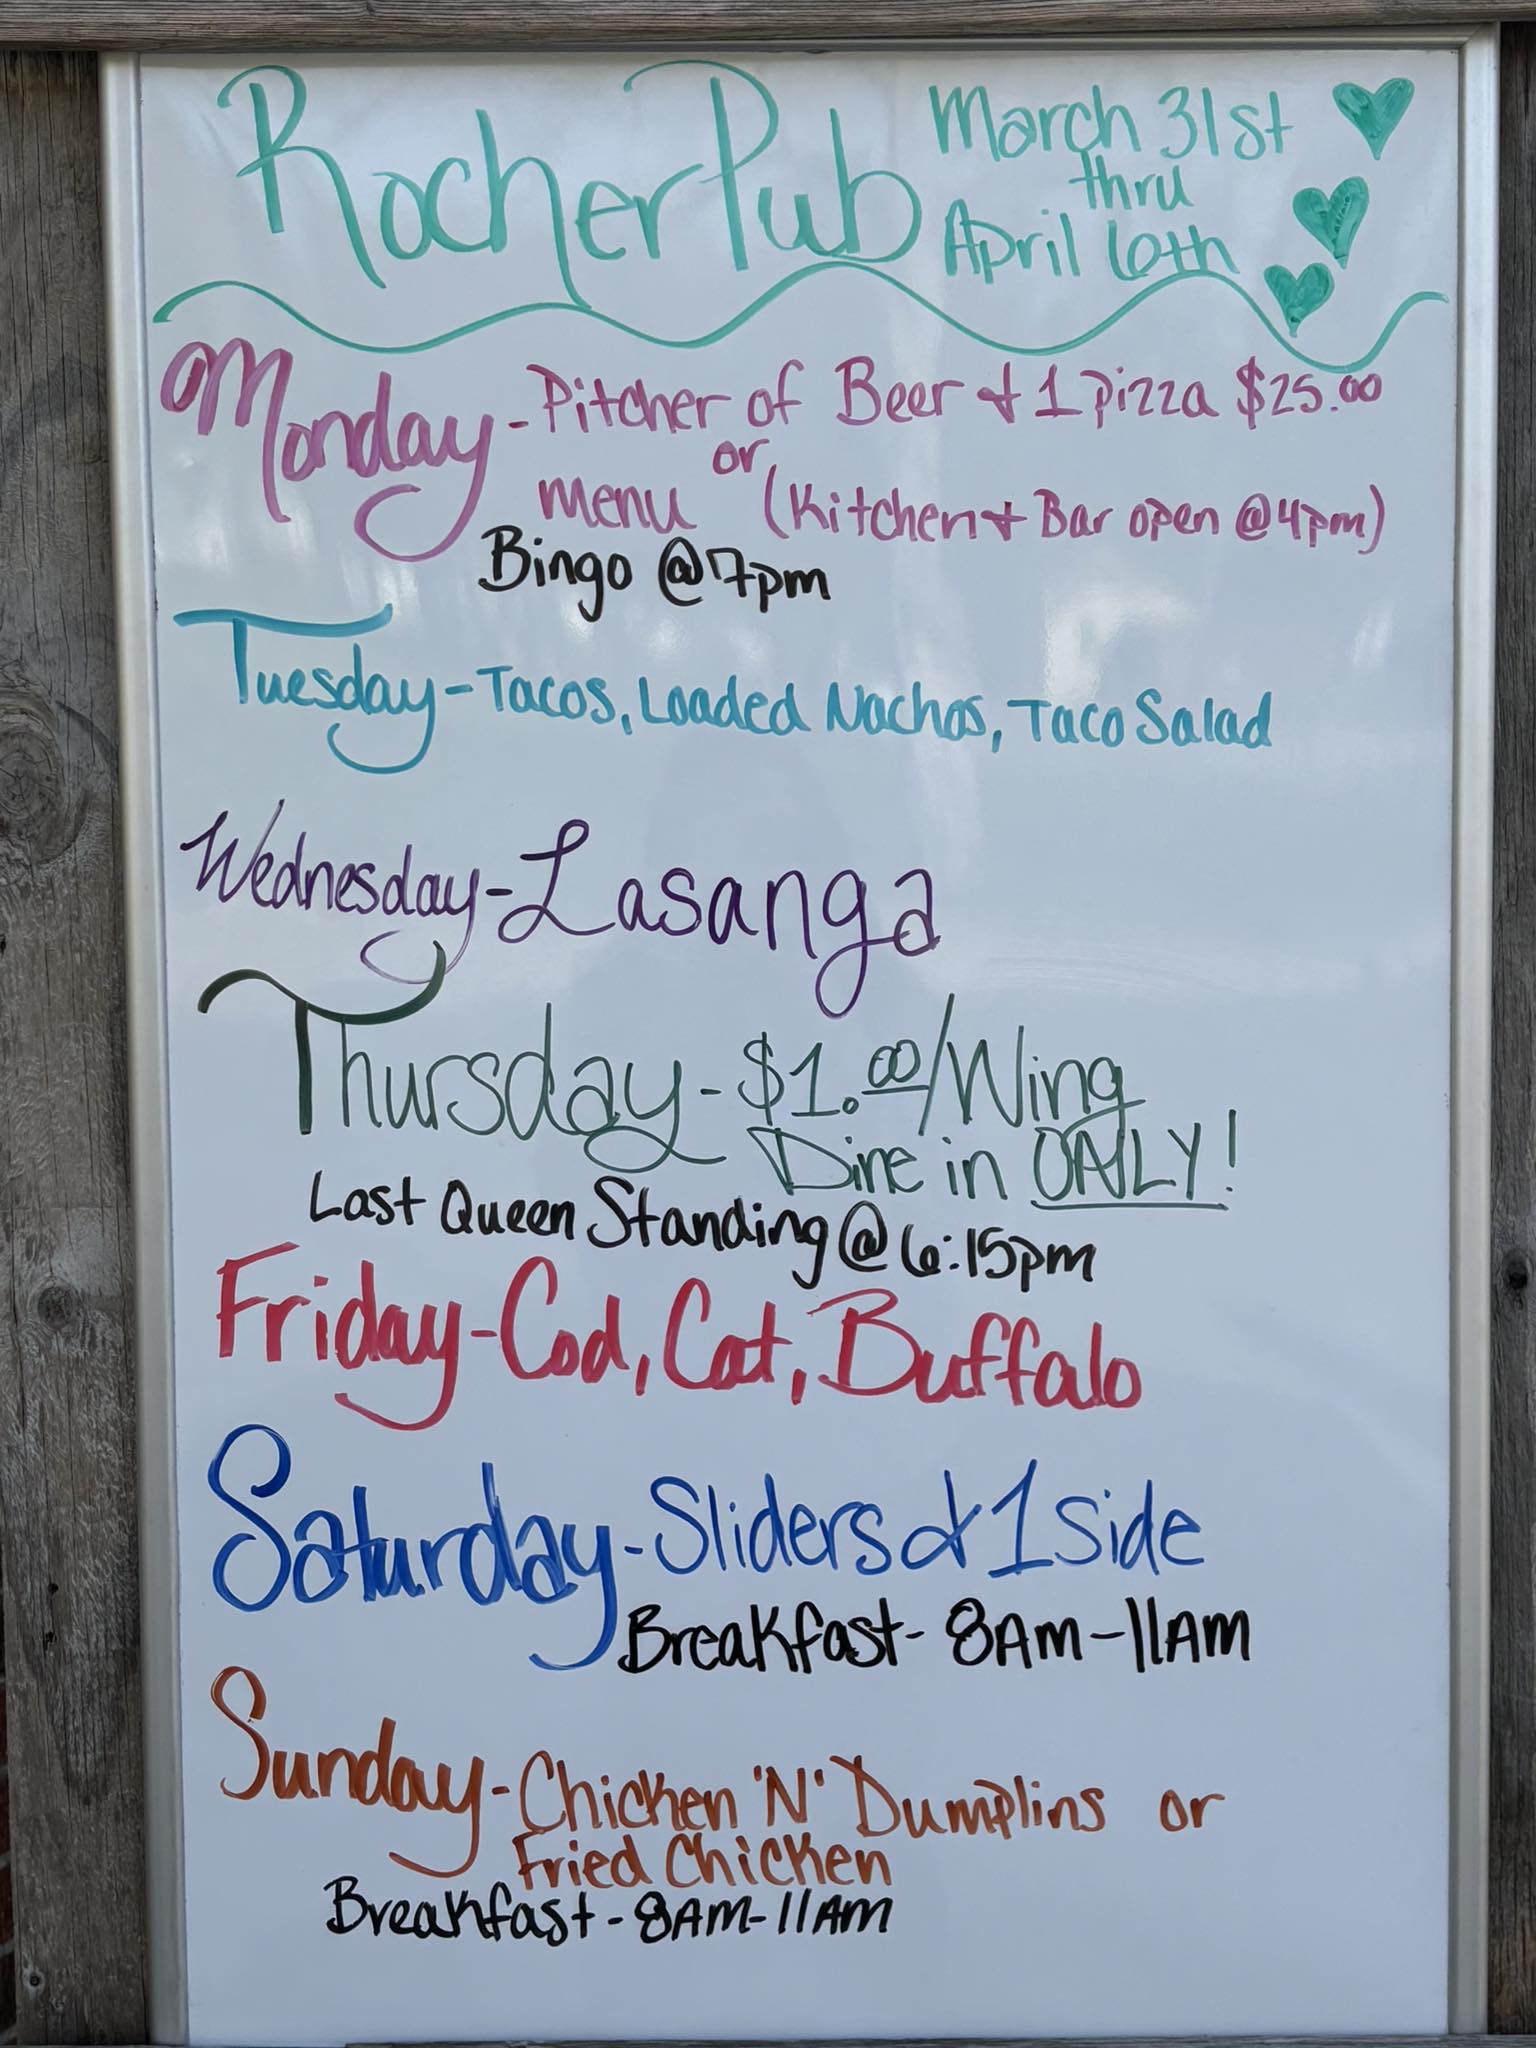 Rocher Pub March 31st
thru
April 6th
Monday - Pitcher of Beer & 1 pizza $25.00
or
menu (Kitchen & Bar open @ 4pm)
Bingo @ 7pm
Tuesday - Tacos, Loaded Nachos, Taco Salad
Wednesday - Lasanga
Thursday - $1.00/Wing
Dine in ONLY!
Last Queen Standing @ 6:15pm
Friday - Cod, Cat, Buffalo
Saturday - Sliders & 1 side
Breakfast - 8AM - 11AM
Sunday - Chicken 'N' Dumplins or
Fried Chicken
Breakfast - 8AM - 11AM